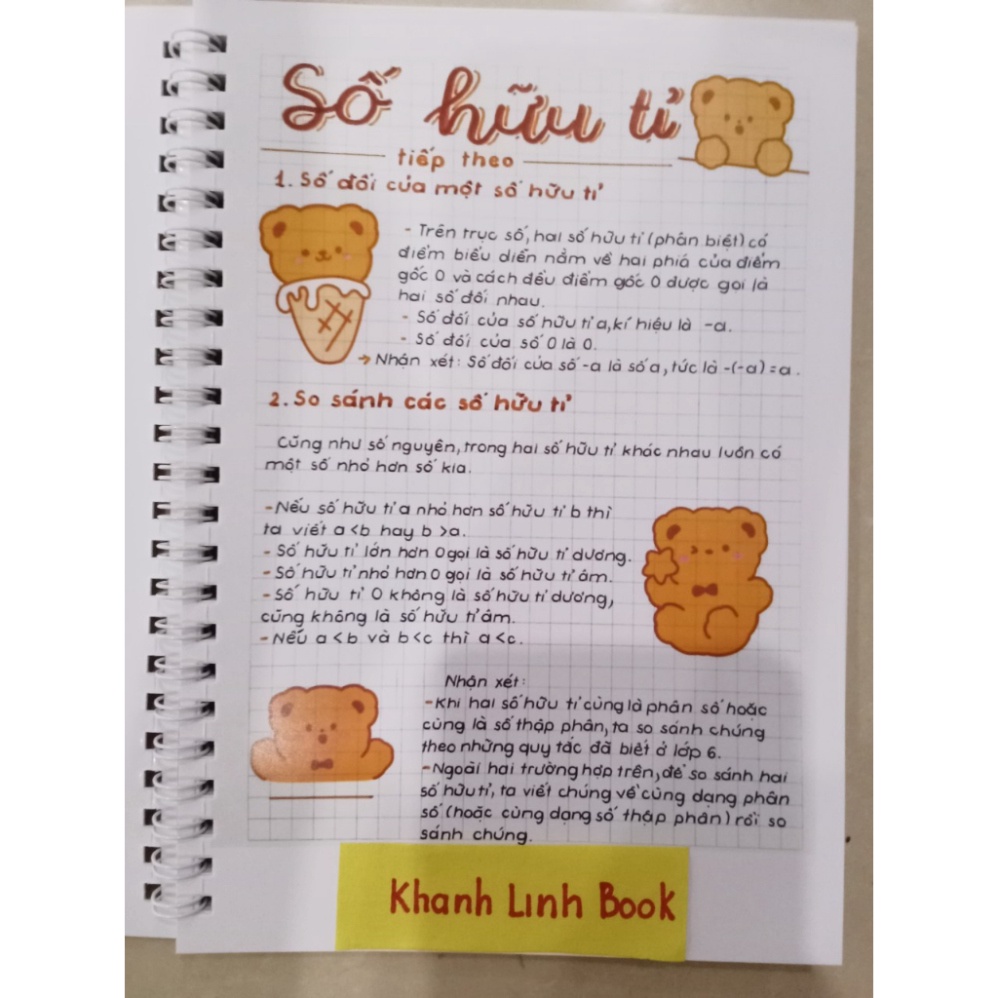 Số hữu tỉ
tiếp theo
1. Số đối của một số hữu tỉ
- Trên trục số, hai số hữu tỉ (phân biệt) có
điểm biểu diễn nằm về hai phiá của điểm
gốc 0 và cách đều điểm gốc 0 được gọi là
hai số đối nhau.
- Số đối của số hữu tỉ a, kí hiệu là -a.
- Số đối của số 0 là 0.
→ Nhận xét: Số đối của số -a là số a, tức là -(-a) = a.
2. So sánh các số hữu tỉ
Cũng như số nguyên, trong hai số hữu tỉ khác nhau luôn có
một số nhỏ hơn số kia.
- Nếu số hữu tỉ a nhỏ hơn số hữu tỉ b thì
ta viết a < b hay b > a.
- Số hữu tỉ lớn hơn 0 gọi là số hữu tỉ dương.
- Số hữu tỉ nhỏ hơn 0 gọi là số hữu tỉ âm.
- Số hữu tỉ 0 không là số hữu tỉ dương,
cũng không là số hữu tỉ âm.
- Nếu a < b và b < c thì a < c.
Nhận xét:
- Khi hai số hữu tỉ cùng là phân số hoặc
cùng là số thập phân, ta so sánh chúng
theo những quy tắc đã biết ở lớp 6.
- Ngoài hai trường hợp trên, để so sánh hai
số hữu tỉ, ta viết chúng về cùng dạng phân
số (hoặc cùng dạng số thập phân) rồi so
sánh chúng.
Khanh Linh Book